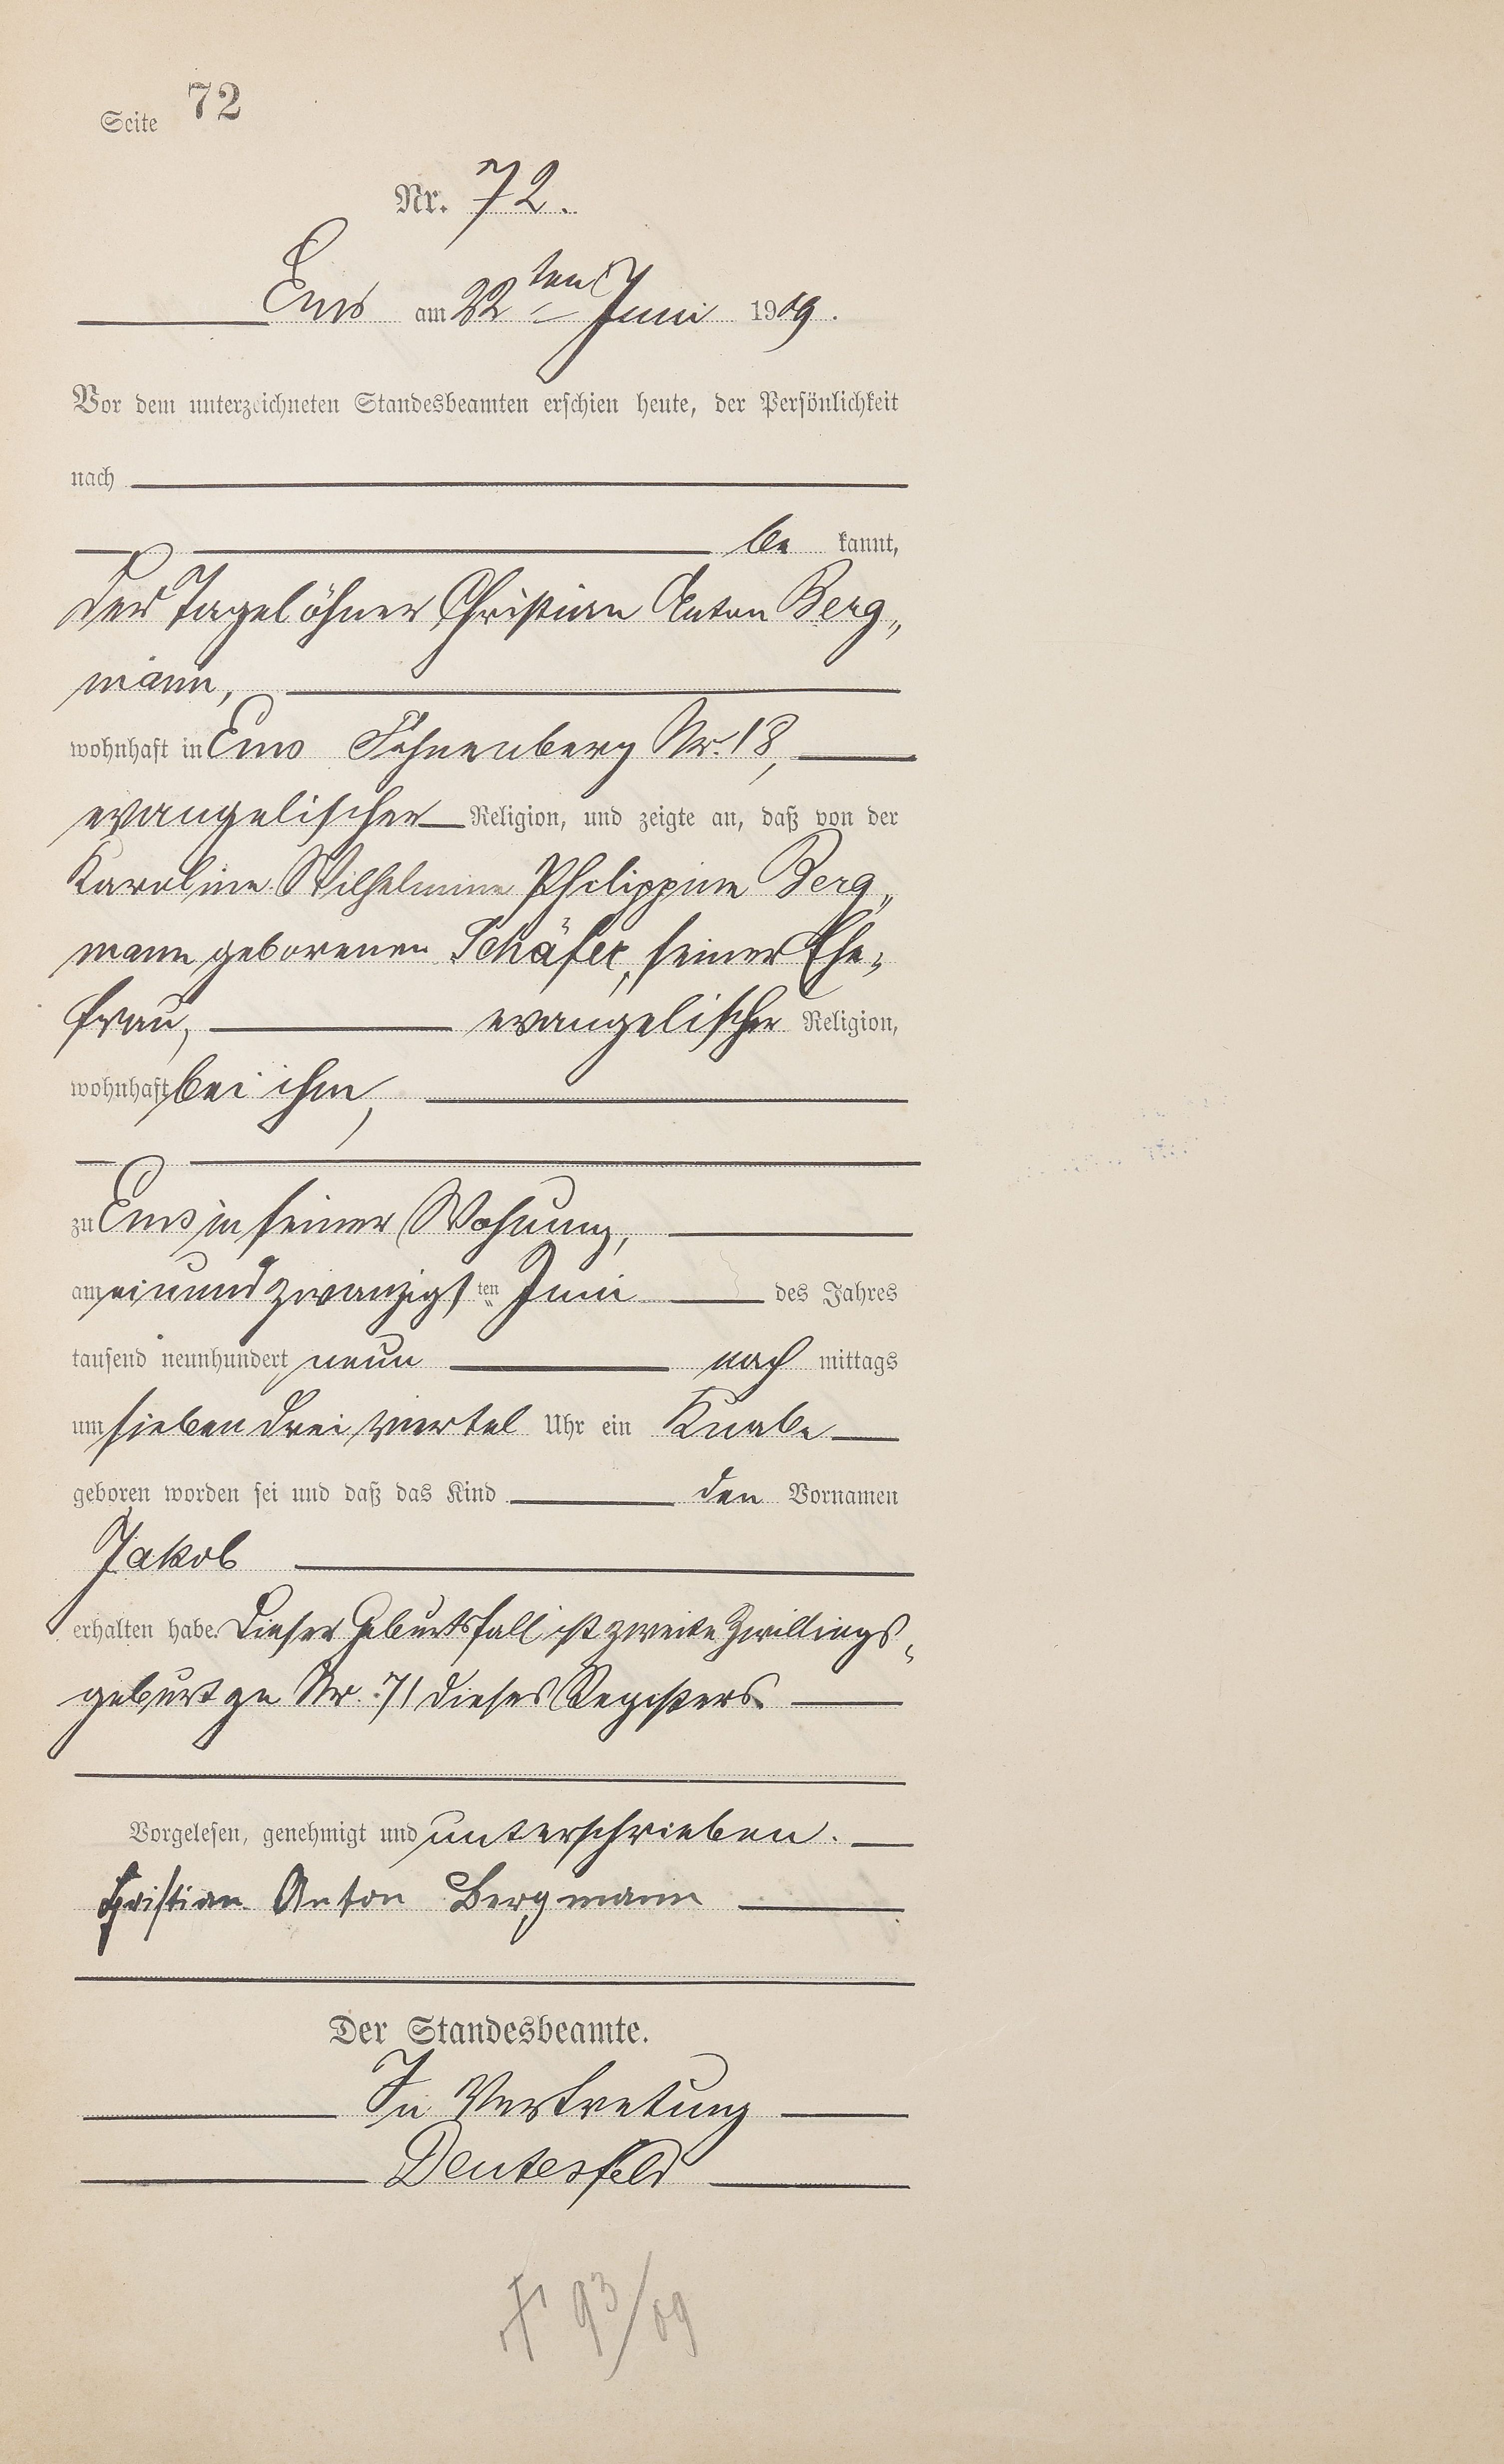 Seite 72
Nr. 72.
Ems am 22ten Juni 1909.
Vor dem unterzeichneten Standesbeamten erschien heute, der Persönlichkeit
nach
be kannt,
der Tagelöhner Christian Anton Berg„
mann,
wohnhaft in Ems Nr. 18,
evangelischer Religion, und zeigte an, daß von der
Karoline Wilhelmine Philippine Berg„
mann geborenen Schäfer, seiner Ehe„
frau, evangelischer Religion,
wohnhaft bei ihm,
zu Ems in seiner Wohnung,
am einundzwanzigsten Juni des Jahres
tausend neunhundert neun nach mittags
um sieben drei viertel Uhr ein Knabe
geboren worden sei und daß das Kind den Vornamen
Jakob
erhalten habe. Dieser Geburtsfall ist zweite Zwillings„
geburt zu Nr. 71 dieses Registers.
Vorgelesen, genehmigt und unterschrieben.
Christian Anton Bergmann
Der Standesbeamte.
In Vertretung
Deutesfeld
93/09